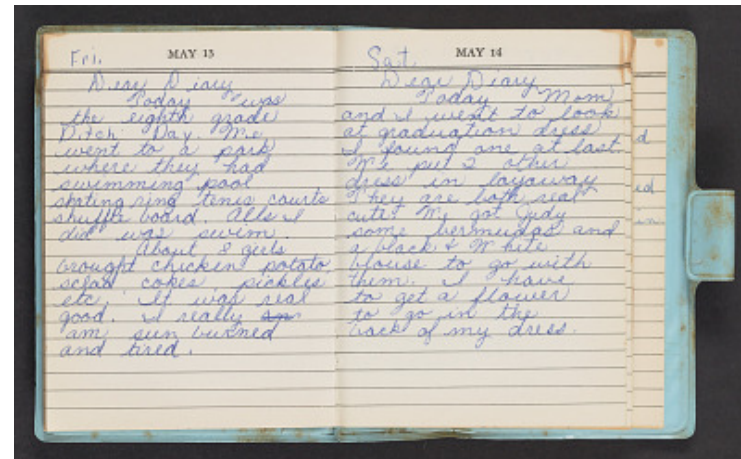 Fri.
MAY 13
Dear Diary
Today was
the eighth grade
Ditch Day. We
went to a park
where they had
swimming pool
skating ring tenis courts
shuffle board. Alls I
did was swim.
About 8 girls
brought chicken potato
sclad cokes, pickles
etc. It was real
good. I really an
am sun burned
and tired.
Sat.
MAY 14
Dear Diary
Today Mom
and I went to look
at graduation dress
I found one at last.
We put 2 other
dress in layaway
They are both real
cute. We got Judy
some bermudas and
a black & White
blouse to go with
them. I have
to get a flower
to go in the
back of my dress.
d
ed
in